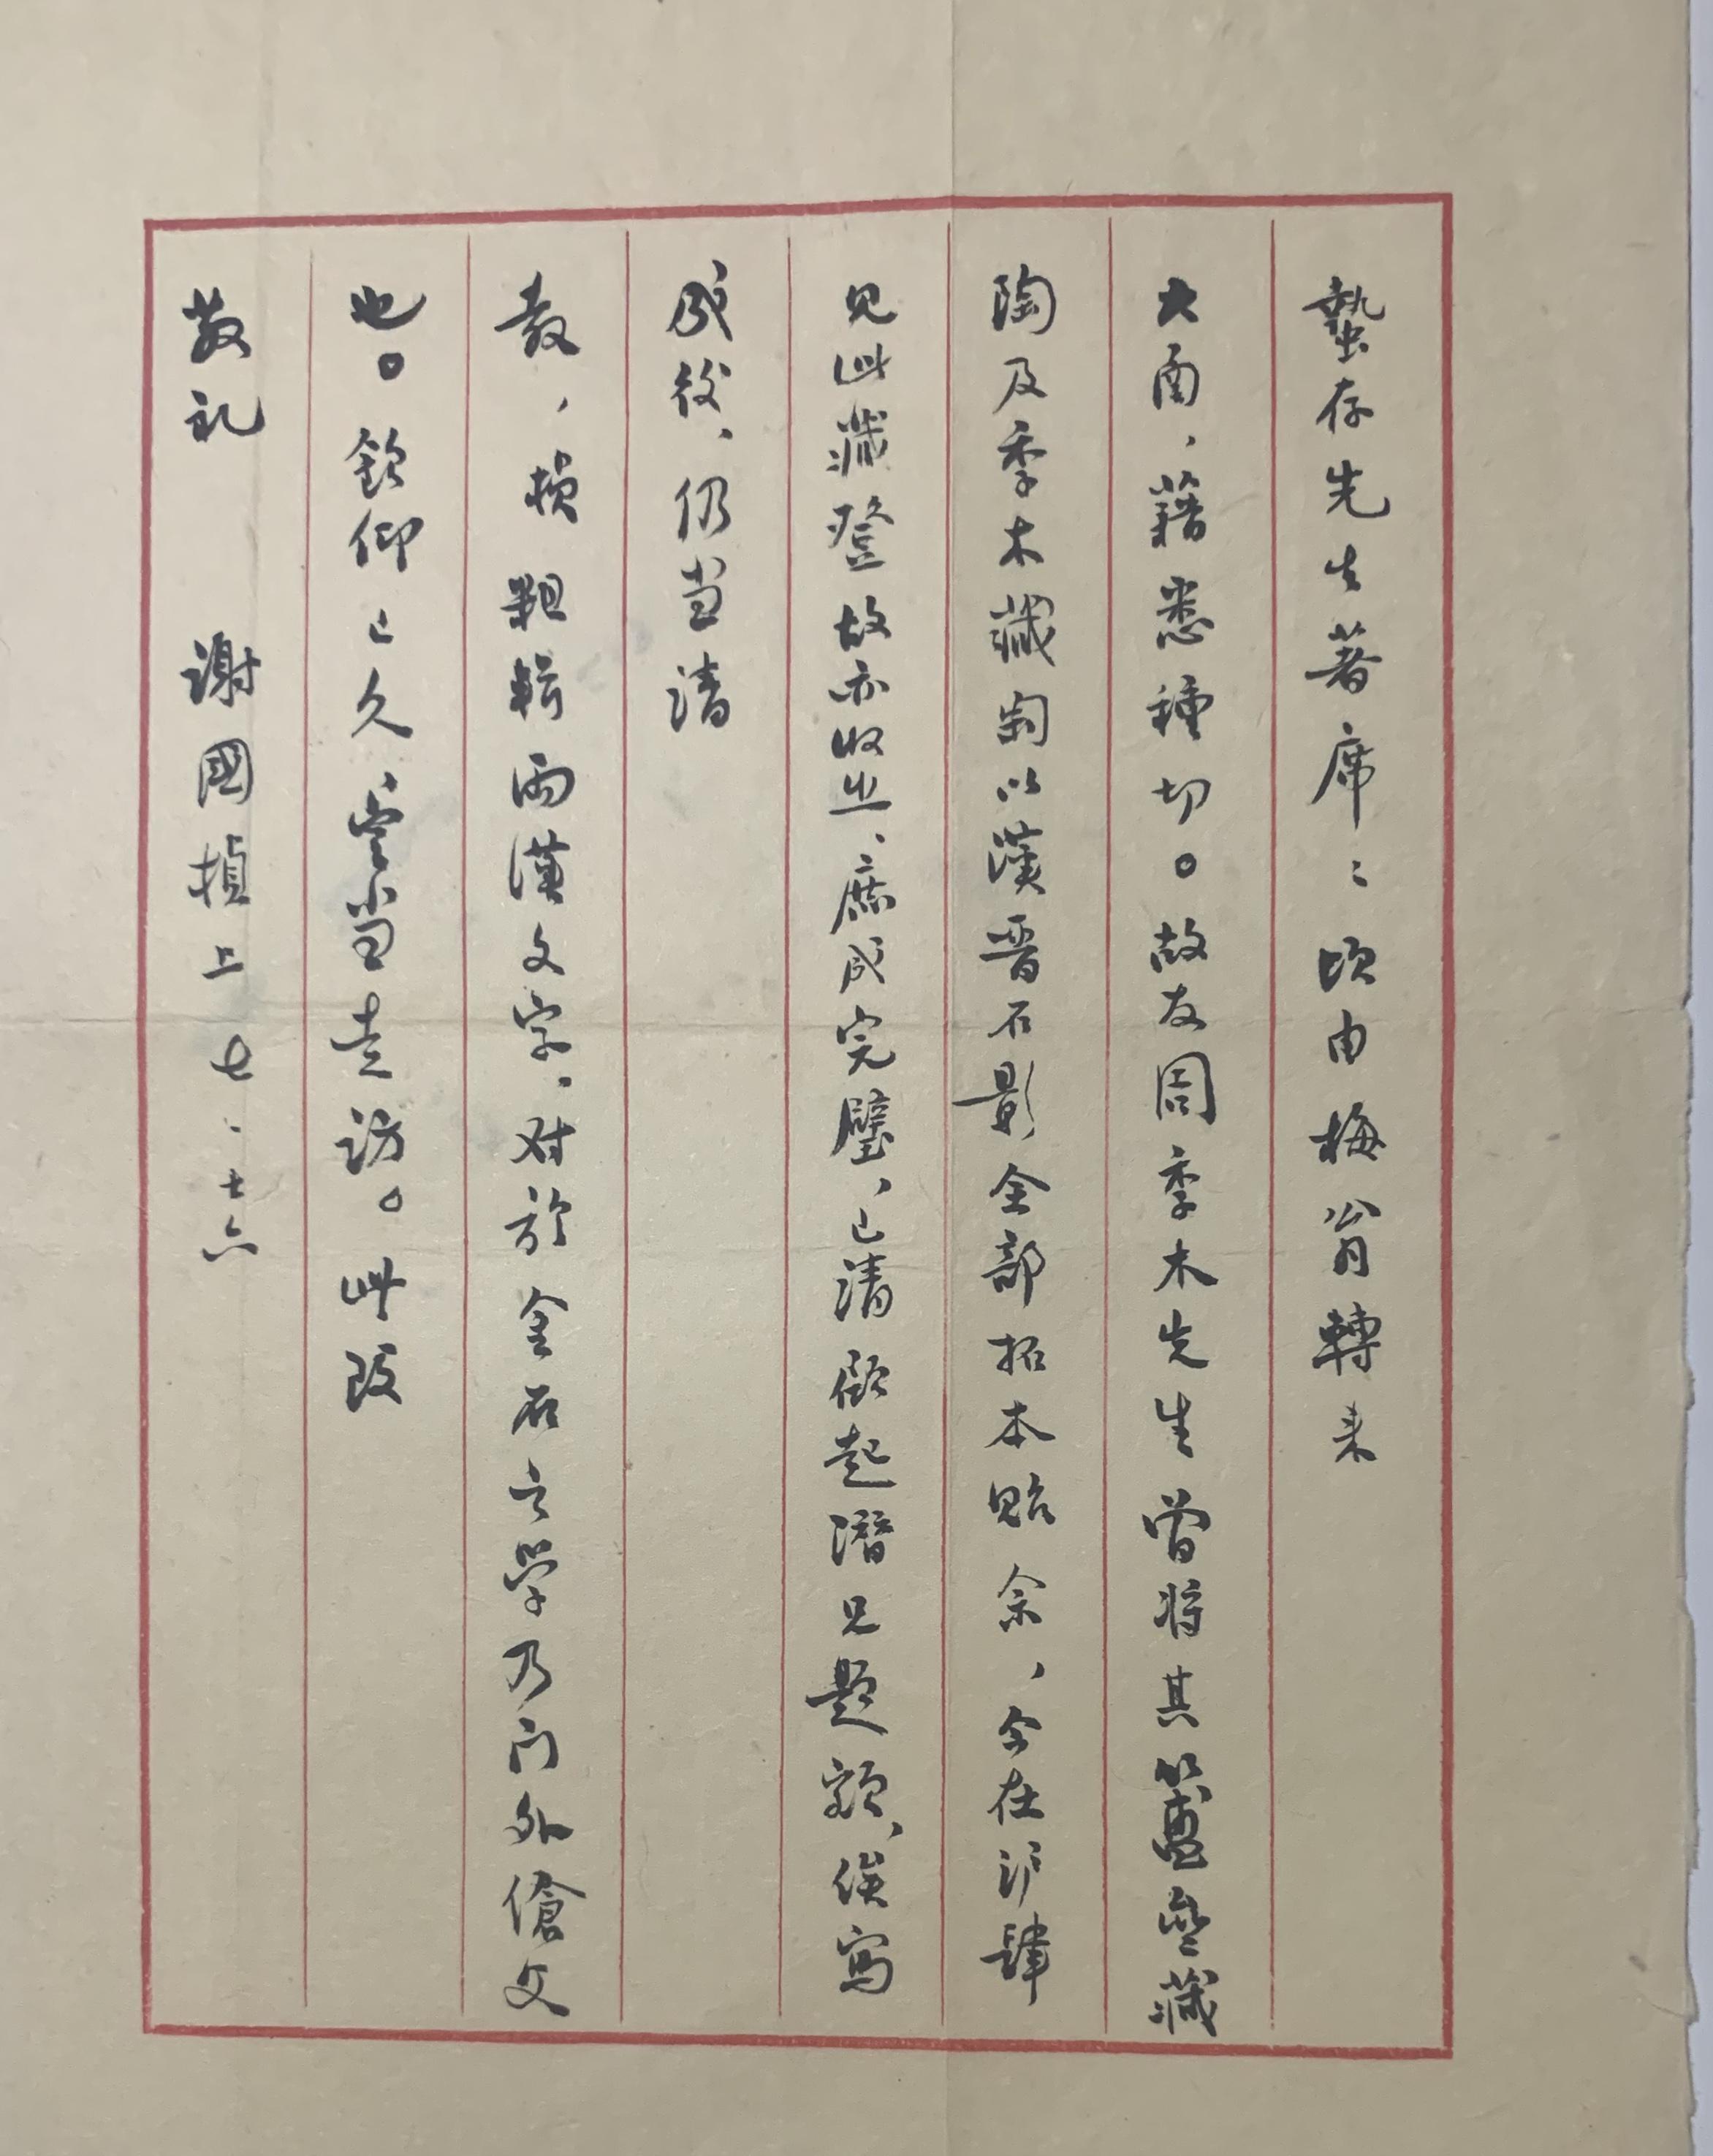 蟄存先生著席：頃由梅翁轉来
大函，藉悉種切。故友周季木先生曾将其簠齋藏
陶及季木藏匋以漢晋石影全部拓本貽余，今在沪肆
见此藏登故亦收之、庶成完璧，已请顾起潜兄题额，俟寫
成後，仍当请
教，楨粗輯两漢文字，对於金石之學乃门外傖父
也。欽仰已久，容当走访。此致
敬礼 谢國楨上 七.十六